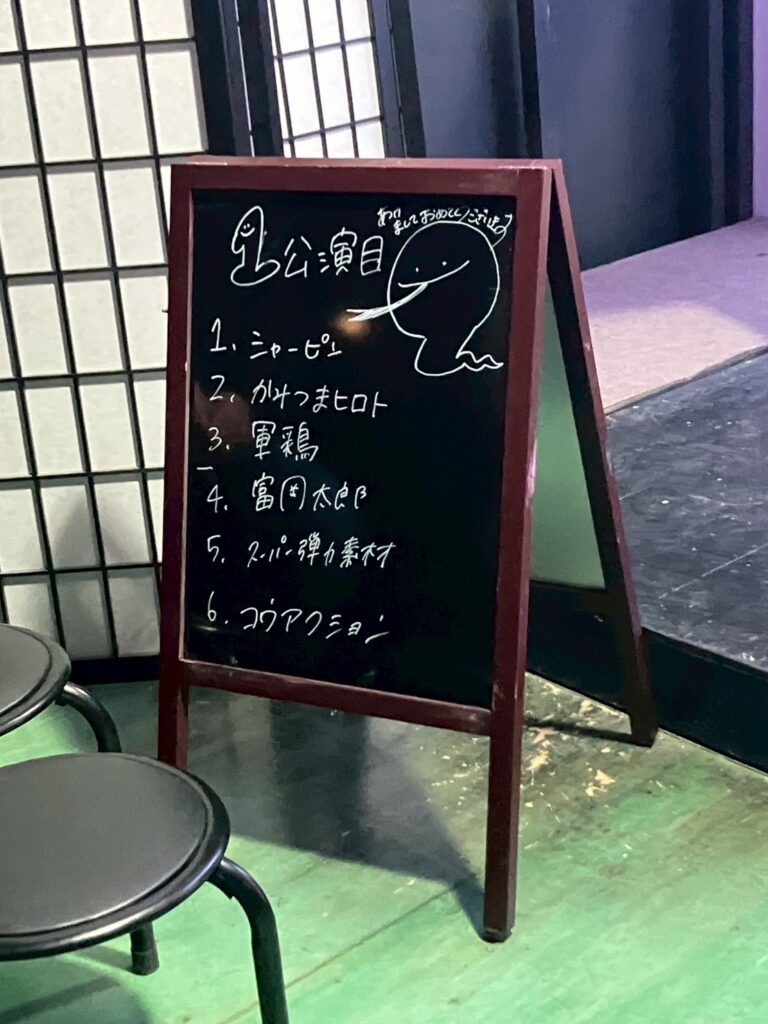 1公演目
あけ
ましておめでとうございます
1. シャーピン
2. かみつまヒロト
3. 軍鶏
4. 富岡太郎
5. スーパー弾力素材
6. コウアクション